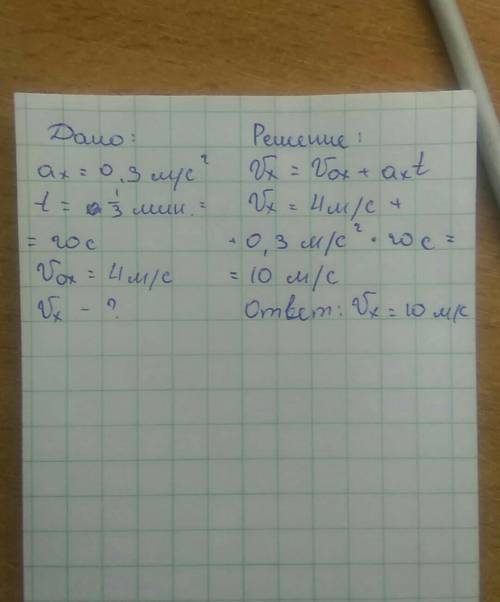 Дано:
aₓ = 0,3 м/с²
t = 1/3 мин. =
= 20 с
V₀ₓ = 4 м/с
Vₓ - ?
Решение:
Vₓ = V₀ₓ + aₓt
Vₓ = 4 м/с +
+ 0,3 м/с² · 20 с =
= 10 м/с
Ответ: Vₓ = 10 м/с